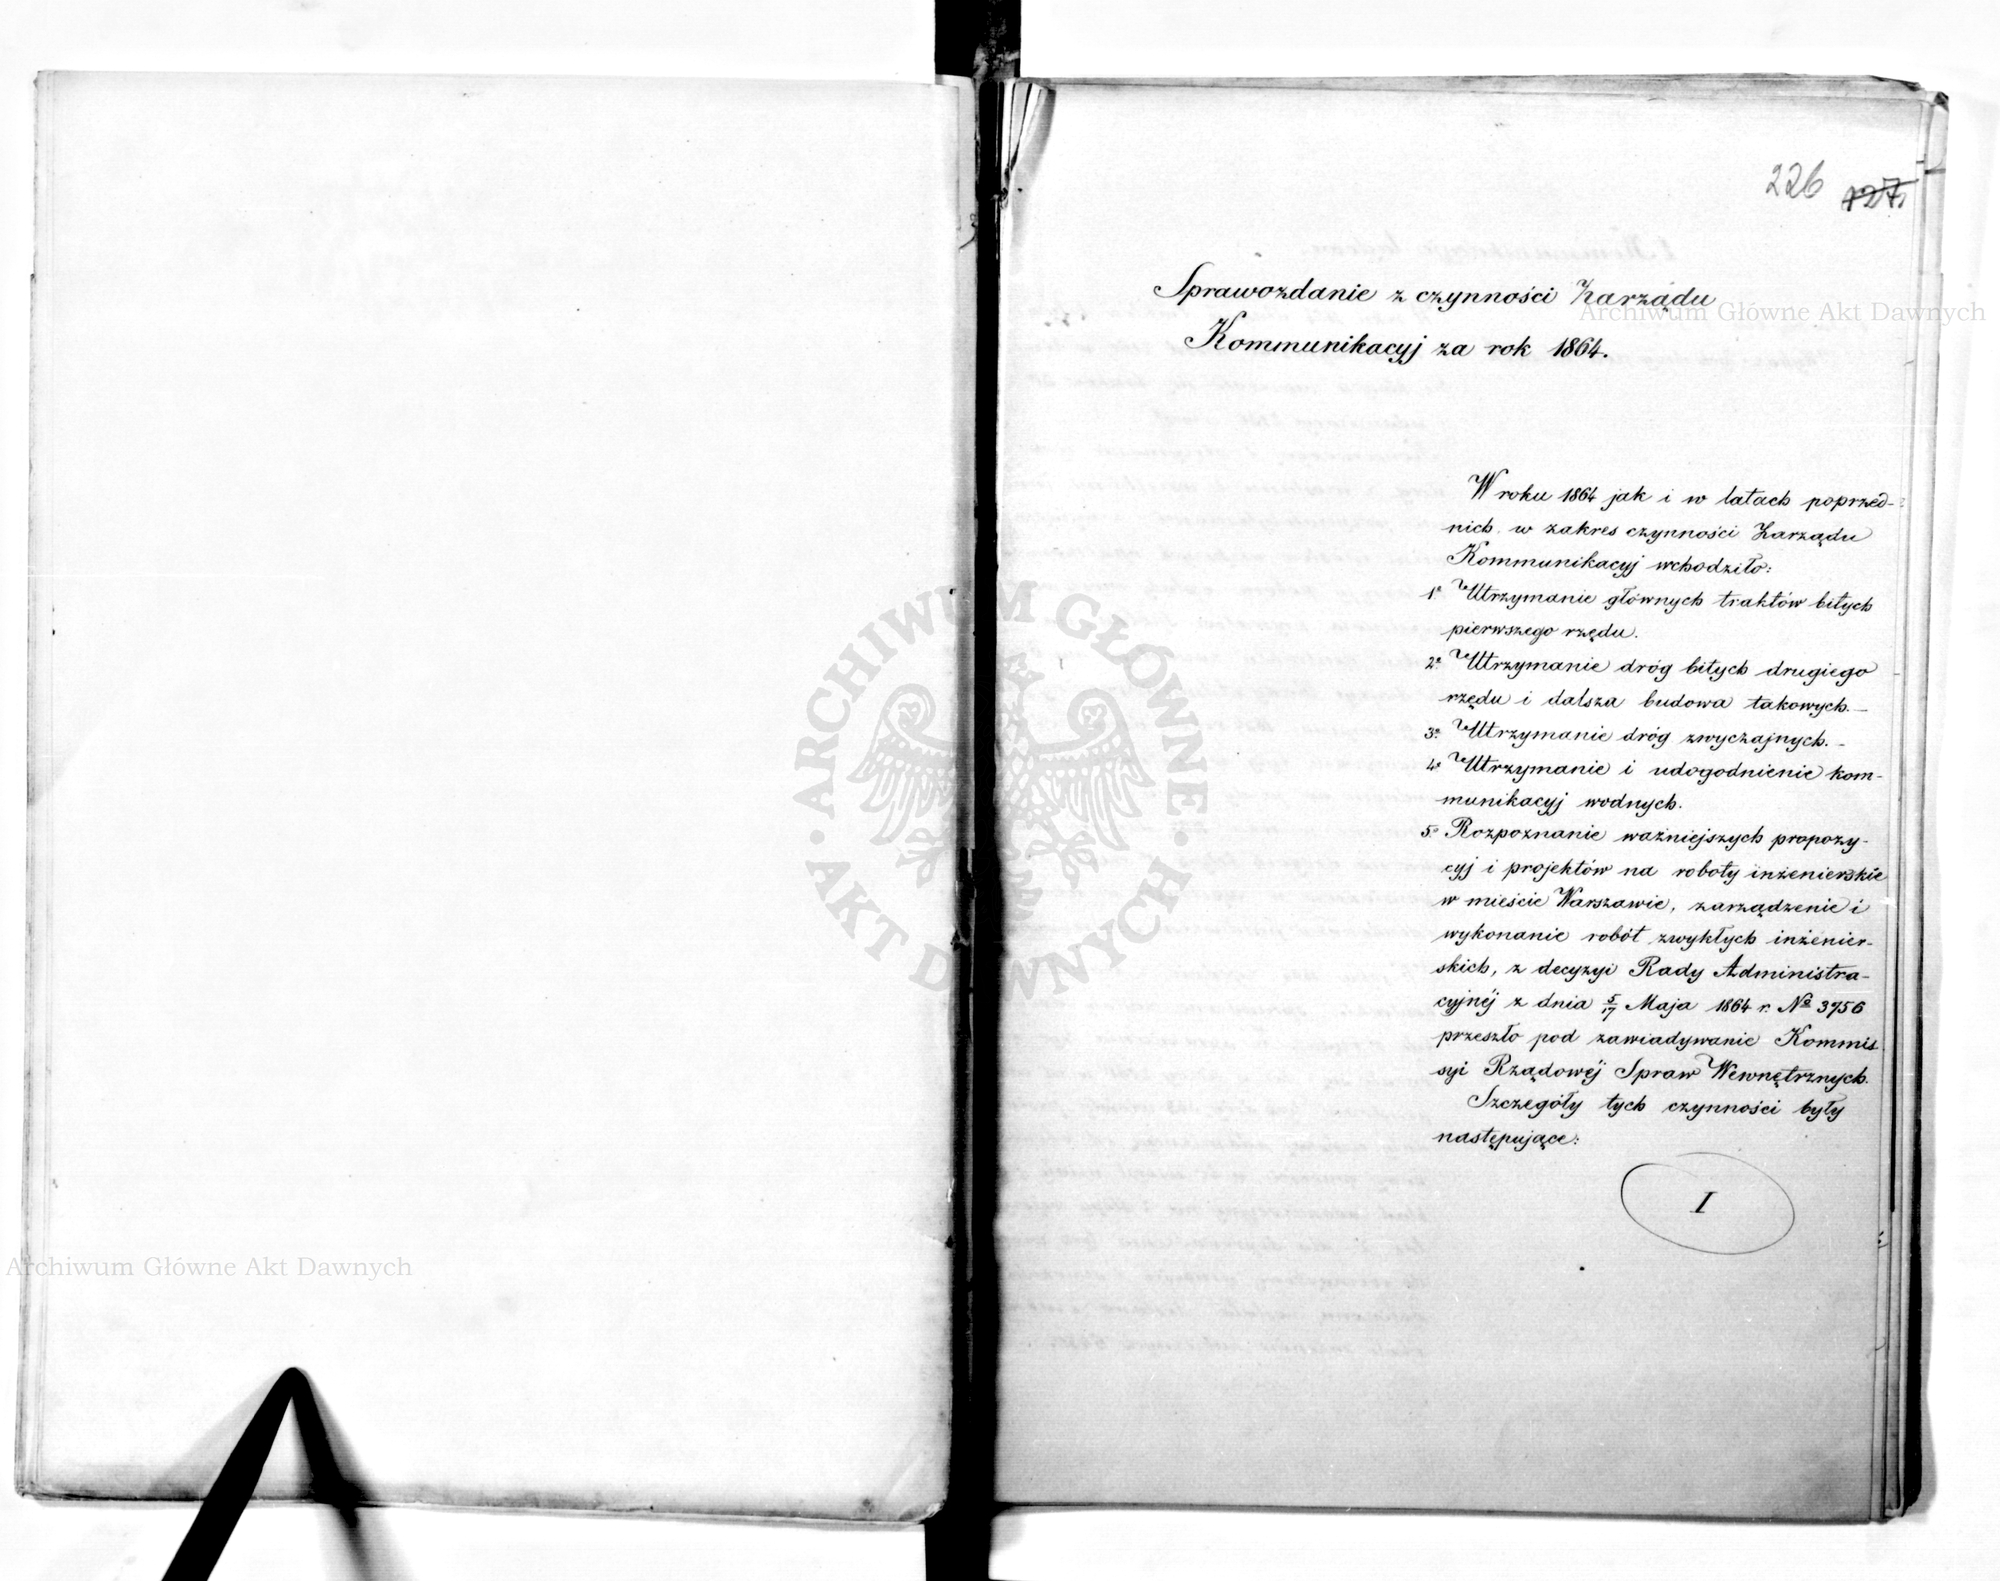 226 127
Sprawozdanie z czynności Zarządu
Kommunikacyj za rok 1864.
W roku 1864 jak i w latach poprzed-
nich w zakres czynności Zarządu
Kommunikacyj wchodziło:
1º Utrzymanie głównych traktów bitych
pierwszego rzędu.
2º Utrzymanie dróg bitych drugiego
rzędu i dalsza budowa takowych.—
3º Utrzymanie dróg zwyczajnych.—
4º Utrzymanie i udogodnienie kom-
munikacyj wodnych.
5º Rozpoznanie ważniejszych propozy-
cyj i projektów na roboty inżenierskie
w mieście Warszawie, zarządzenie i
wykonanie robót zwykłych inżenier-
skich, z decyzyi Rady Administra-
cyjnéj z dnia 5/17 Maja 1864 r. Nº 3756
przeszło pod zawiadywanie Kommis
syi Rządowéj Spraw Wewnętrznych.
Szczegóły tych czynności były
następujące:
I
Archiwum Główne Akt Dawnych
Archiwum Główne Akt Dawnych
ARCHIWUM GŁÓWNE
AKT DAWNYCH